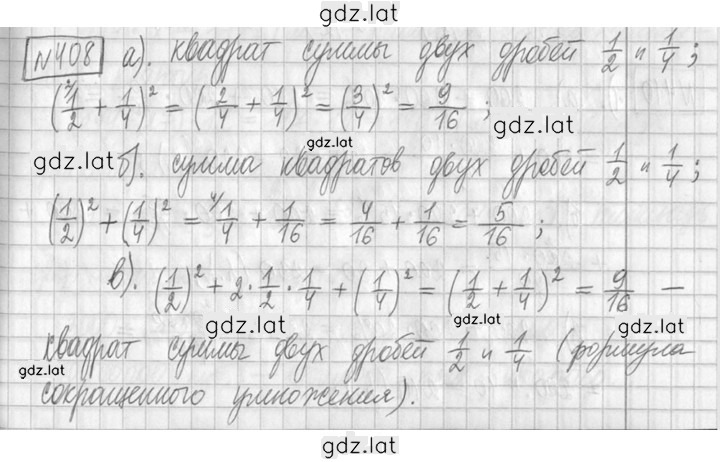 gdz.lat
№408 а). квадрат суммы двух дробей 1/2 и 1/4;
(²⁄1/2 + 1/4)² = (2/4 + 1/4)² = (3/4)² = 9/16 ;
gdz.lat
gdz.lat б). сумма квадратов двух дробей 1/2 и 1/4; gdz.lat
(1/2)² + (1/4)² = ⁴⁄1/4 + 1/16 = 4/16 + 1/16 = 5/16 ;
в). (1/2)² + 2·1/2·1/4 + (1/4)² = (1/2 + 1/4)² = 9/16 —
gdz.lat gdz.lat gdz.lat
квадрат суммы двух дробей 1/2 и 1/4 (формула
gdz.lat
сокращенного умножения).
gdz.lat